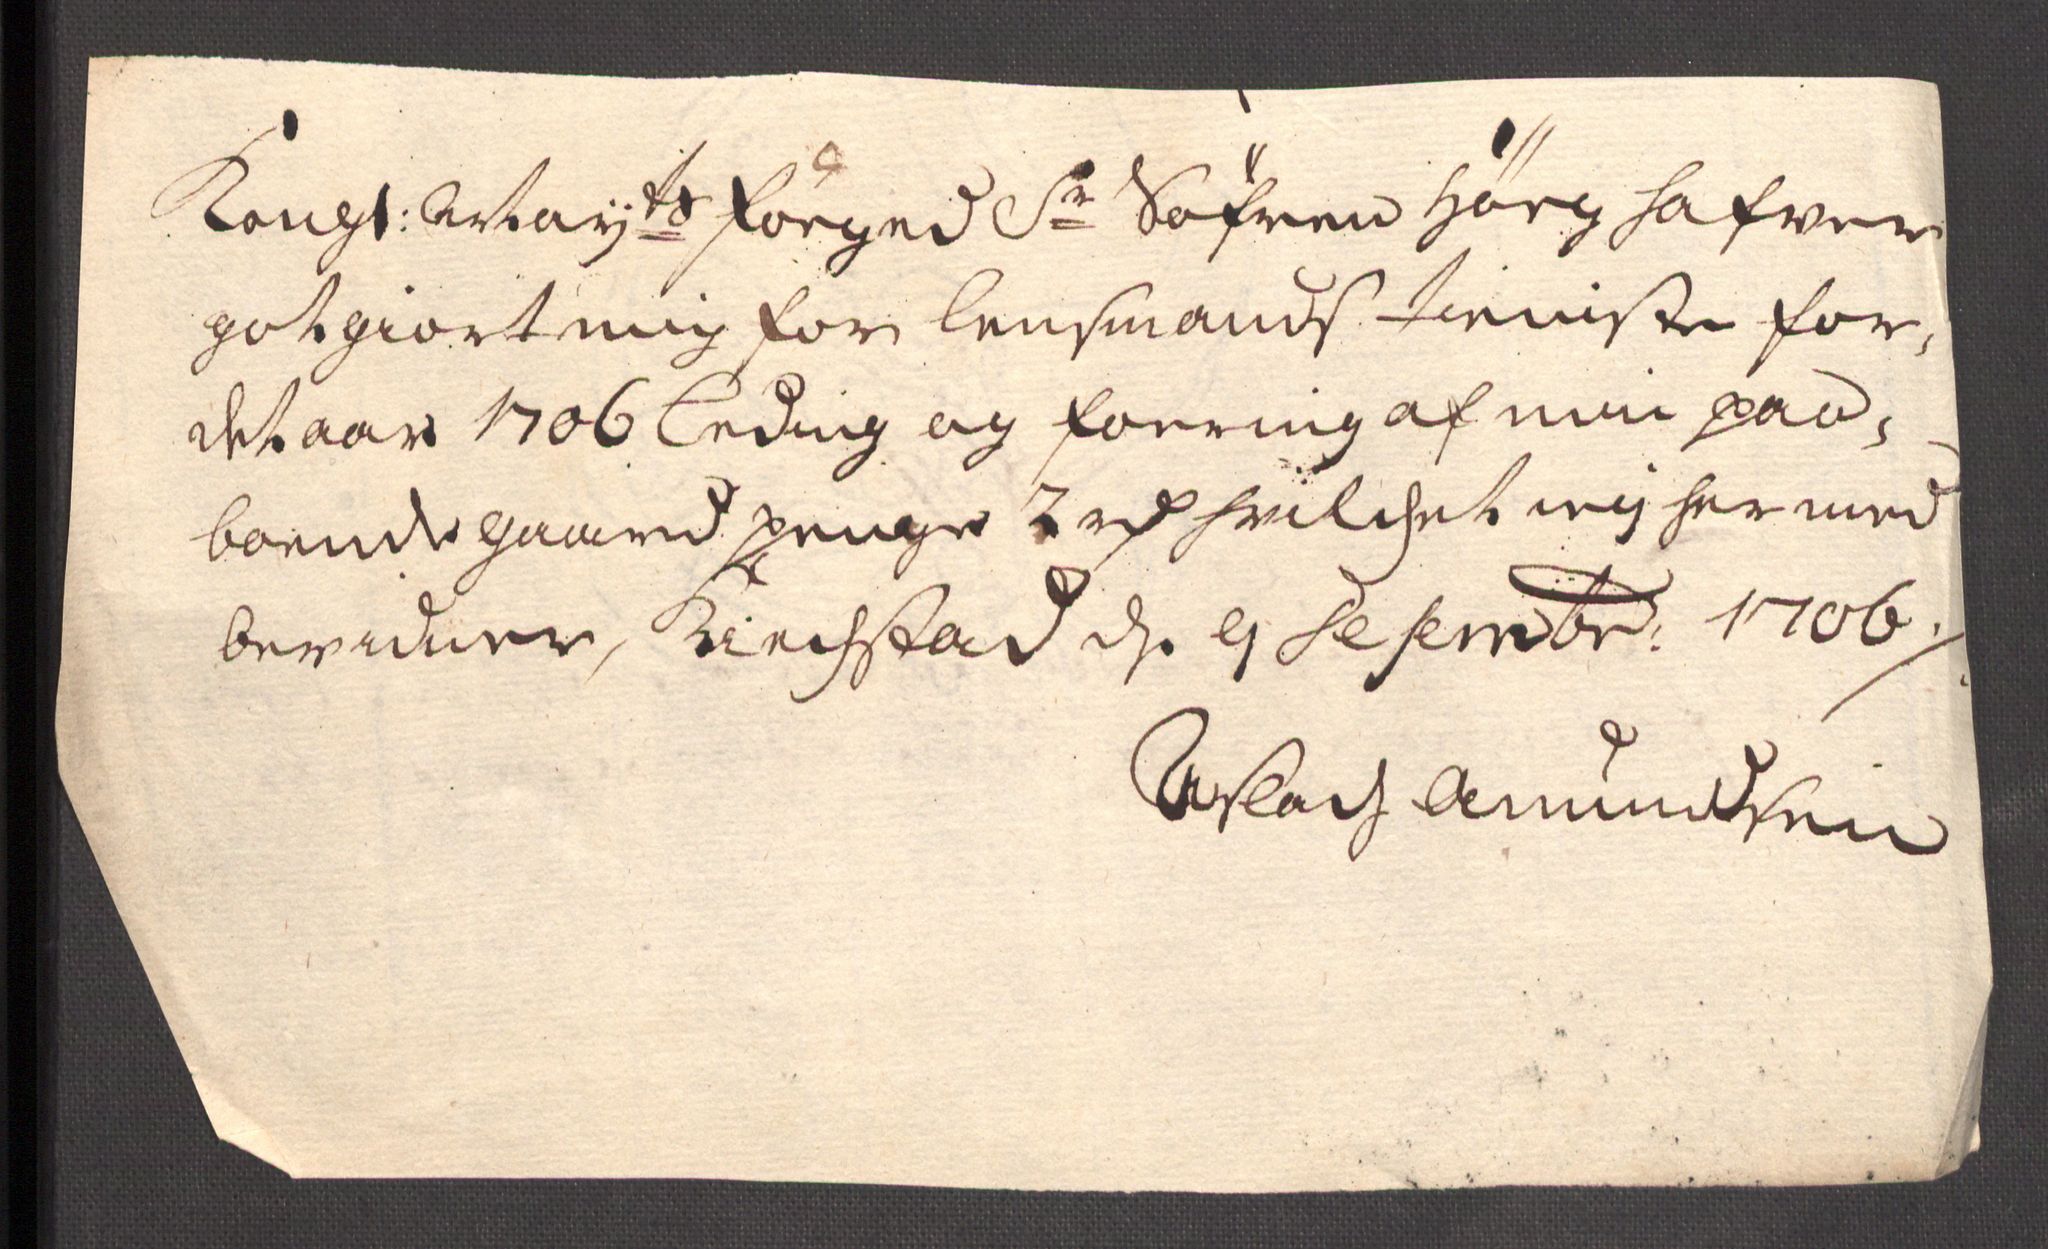 Kongl: Maÿts foeged Sr Söfren Höeg hafver
got giort mig for lensmands tieniste for,
det aar 1706 leding og foering af min paa,
boende gaard penge 2 rd hvilchet ieg her med
beviduer, Kirchstad d. 9 desembr: 1706.
Aslach Amundsen